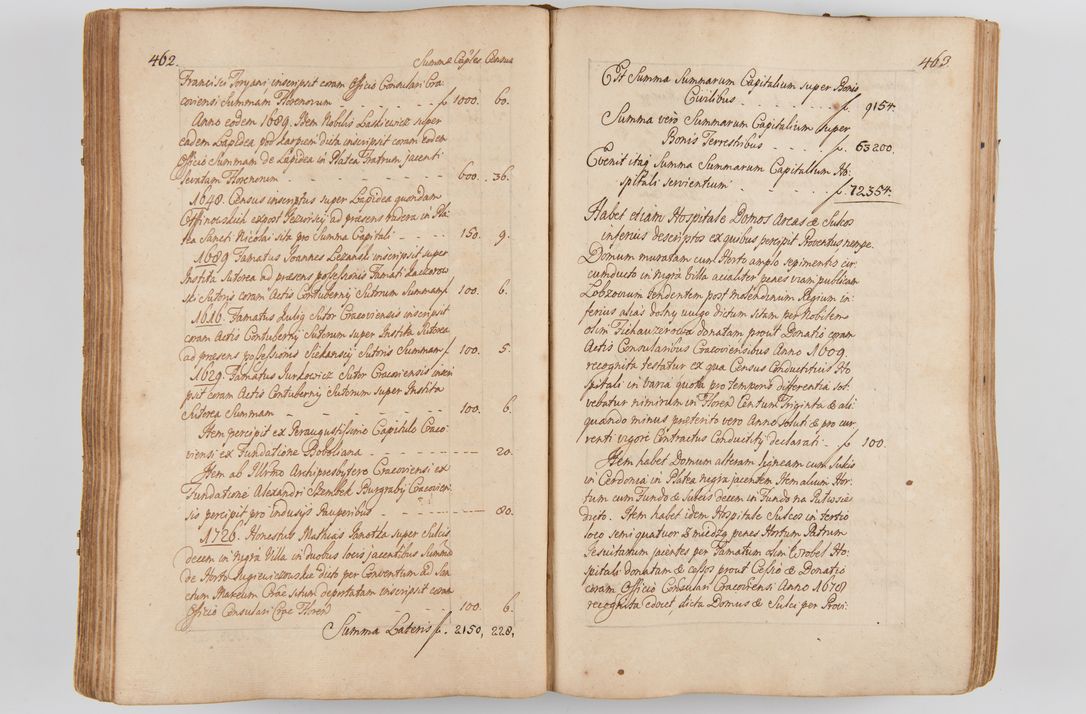 462. Summæ Caples Census
Francisci Toryani inscripsit coram Officio Consulari Cra:
coviensi Summam Florenorum - - - f. 1000. 60.
Anno eodem 1689. Idem Nobilis Laskiewicz super
eadem Lapidea pod Karpiem dicta inscripsit coram eodem
Officio Summam de Lapidea in Platea Fratrum jacenti
levatam Florenorum - - - 600. 36.
1648. Census inscriptus super Lapidea quondam
ad præsens rudera in Pla:
tea Sancti Nicolai sita pro Summa Capitali - - - 150. 9.
1689 Famatus Joannes Lezanski inscripsit super
Instita Sutorea ad præsens possessionis Famati
Sutoris coram Actis Contubernij Sutorum Summam f. 100. 6.
1616 Famatus Kulig Sutor Cracoviensis inscripsit
coram Actis Contubernij Sutorum super Instita Sutorea
ad præsens possessionis Siekanscij Sutoris Summam f. 100. 5.
1629. Famatus Jurkowicz Sutor Cracoviensis inscri
psit coram Actis Contubernij Sutorum super Instita
Sutorea Summam - - - 100. 6.
Item percipit ex Peraugustissimo Capitulo Craco:
viensi ex Fundatione Boboliana - - - 20.
Item ab Illrmo Archipresbytero Cracoviensi ex
Fundatione Alexandri Szembek Burgrabij Cracovien:
sis percipit pro Indusijs Pauperibus - - - 80.
1726. Honestus Mathias Janotka super Sulcis
decem in Nigra Villa in duobus locis jacentibus Summam
de Horto dicto per Conventum ad San:
ctum Marcum Crac: situm deportatam inscripsit coram
Officio Consulari Crac: Floren - - - 100. 6.
Summa Lateris f. 2150, 228,
463
Est Summa Summarum Capitalium super Bonis
Civilibus - - - f. 9154.
Summa vero Summarum Capitalium super
Bonis Terrestribus - - - f. 63200.
Evenit itaq Summa Summarum Capitalium Ho:
spitali servientium - - - f. 72354.
Habet etiam Hospitale Domos Areas & Sulcos
inferius descriptos ex quibus percipit Proventus nempe.
Domum muratam cum Horto amplo sepimentis cir:
cumducto in Nigra Villa penes viam publicam
Lobzovium tendentem post Molendinum Regium in:
ferius alias dolny vulgo dictum sitam per Nobilem
olim donatam prout Donatio coram
Actis Consularibus Cracoviensibus Anno 1609.
recognita testatur ex qua Census Conductitius Ho:
spitali in varia quota pro temporis differentia sol:
vebatur nimirum in Floren Centum Triginta & ali:
quando minus præterito vero Anno soluti & pro cur:
renti vigore Contractus Conductitij declarati - f. 100.
Item habet Domum alteram ligneam cum Sulcis
in Cerdonia in Platea nigra jacentem Item alium Hor:
tum cum Fundo & Sulcis decem in Fundo na
dicto. Item habet idem Hospitale Sulcos in tertio
loco semi quatuor Zmiedzą penes Hortum Patrum
Jesuitarum jacentes per Famatum olim Wrobel Ho:
spitali donatum & cessos prout Cessio & Donatio
coram Officio Consulari Cracoviensi Anno 1678
recognita edocet, dicta Domus & Sulci per Provi: